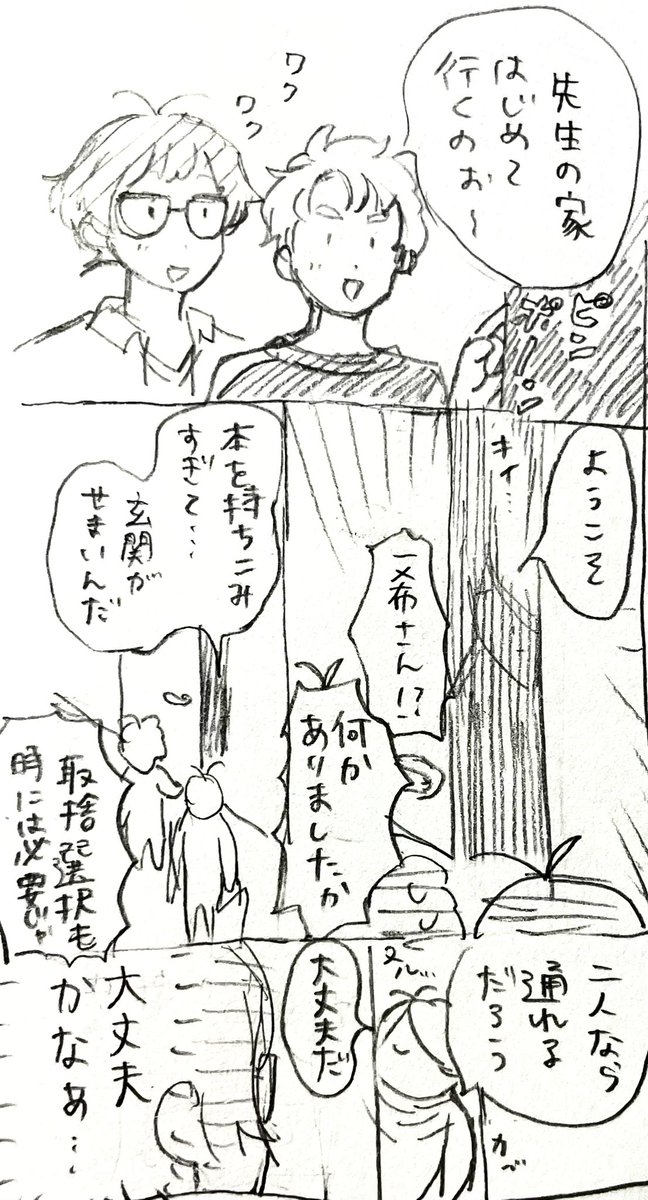 先生の家
はじめて
行くのお〜
ワク
ワク
ピン
ポーン
ようこそ
キィ…
一希さん!?
何か
ありましたか
本を持ちこみ
すぎて…
玄関が
せまいんだ
取捨選択も
時には必要じゃ
二人なら
通れる
だろう
ヌル…
大丈夫だ
大丈夫
かなぁ…